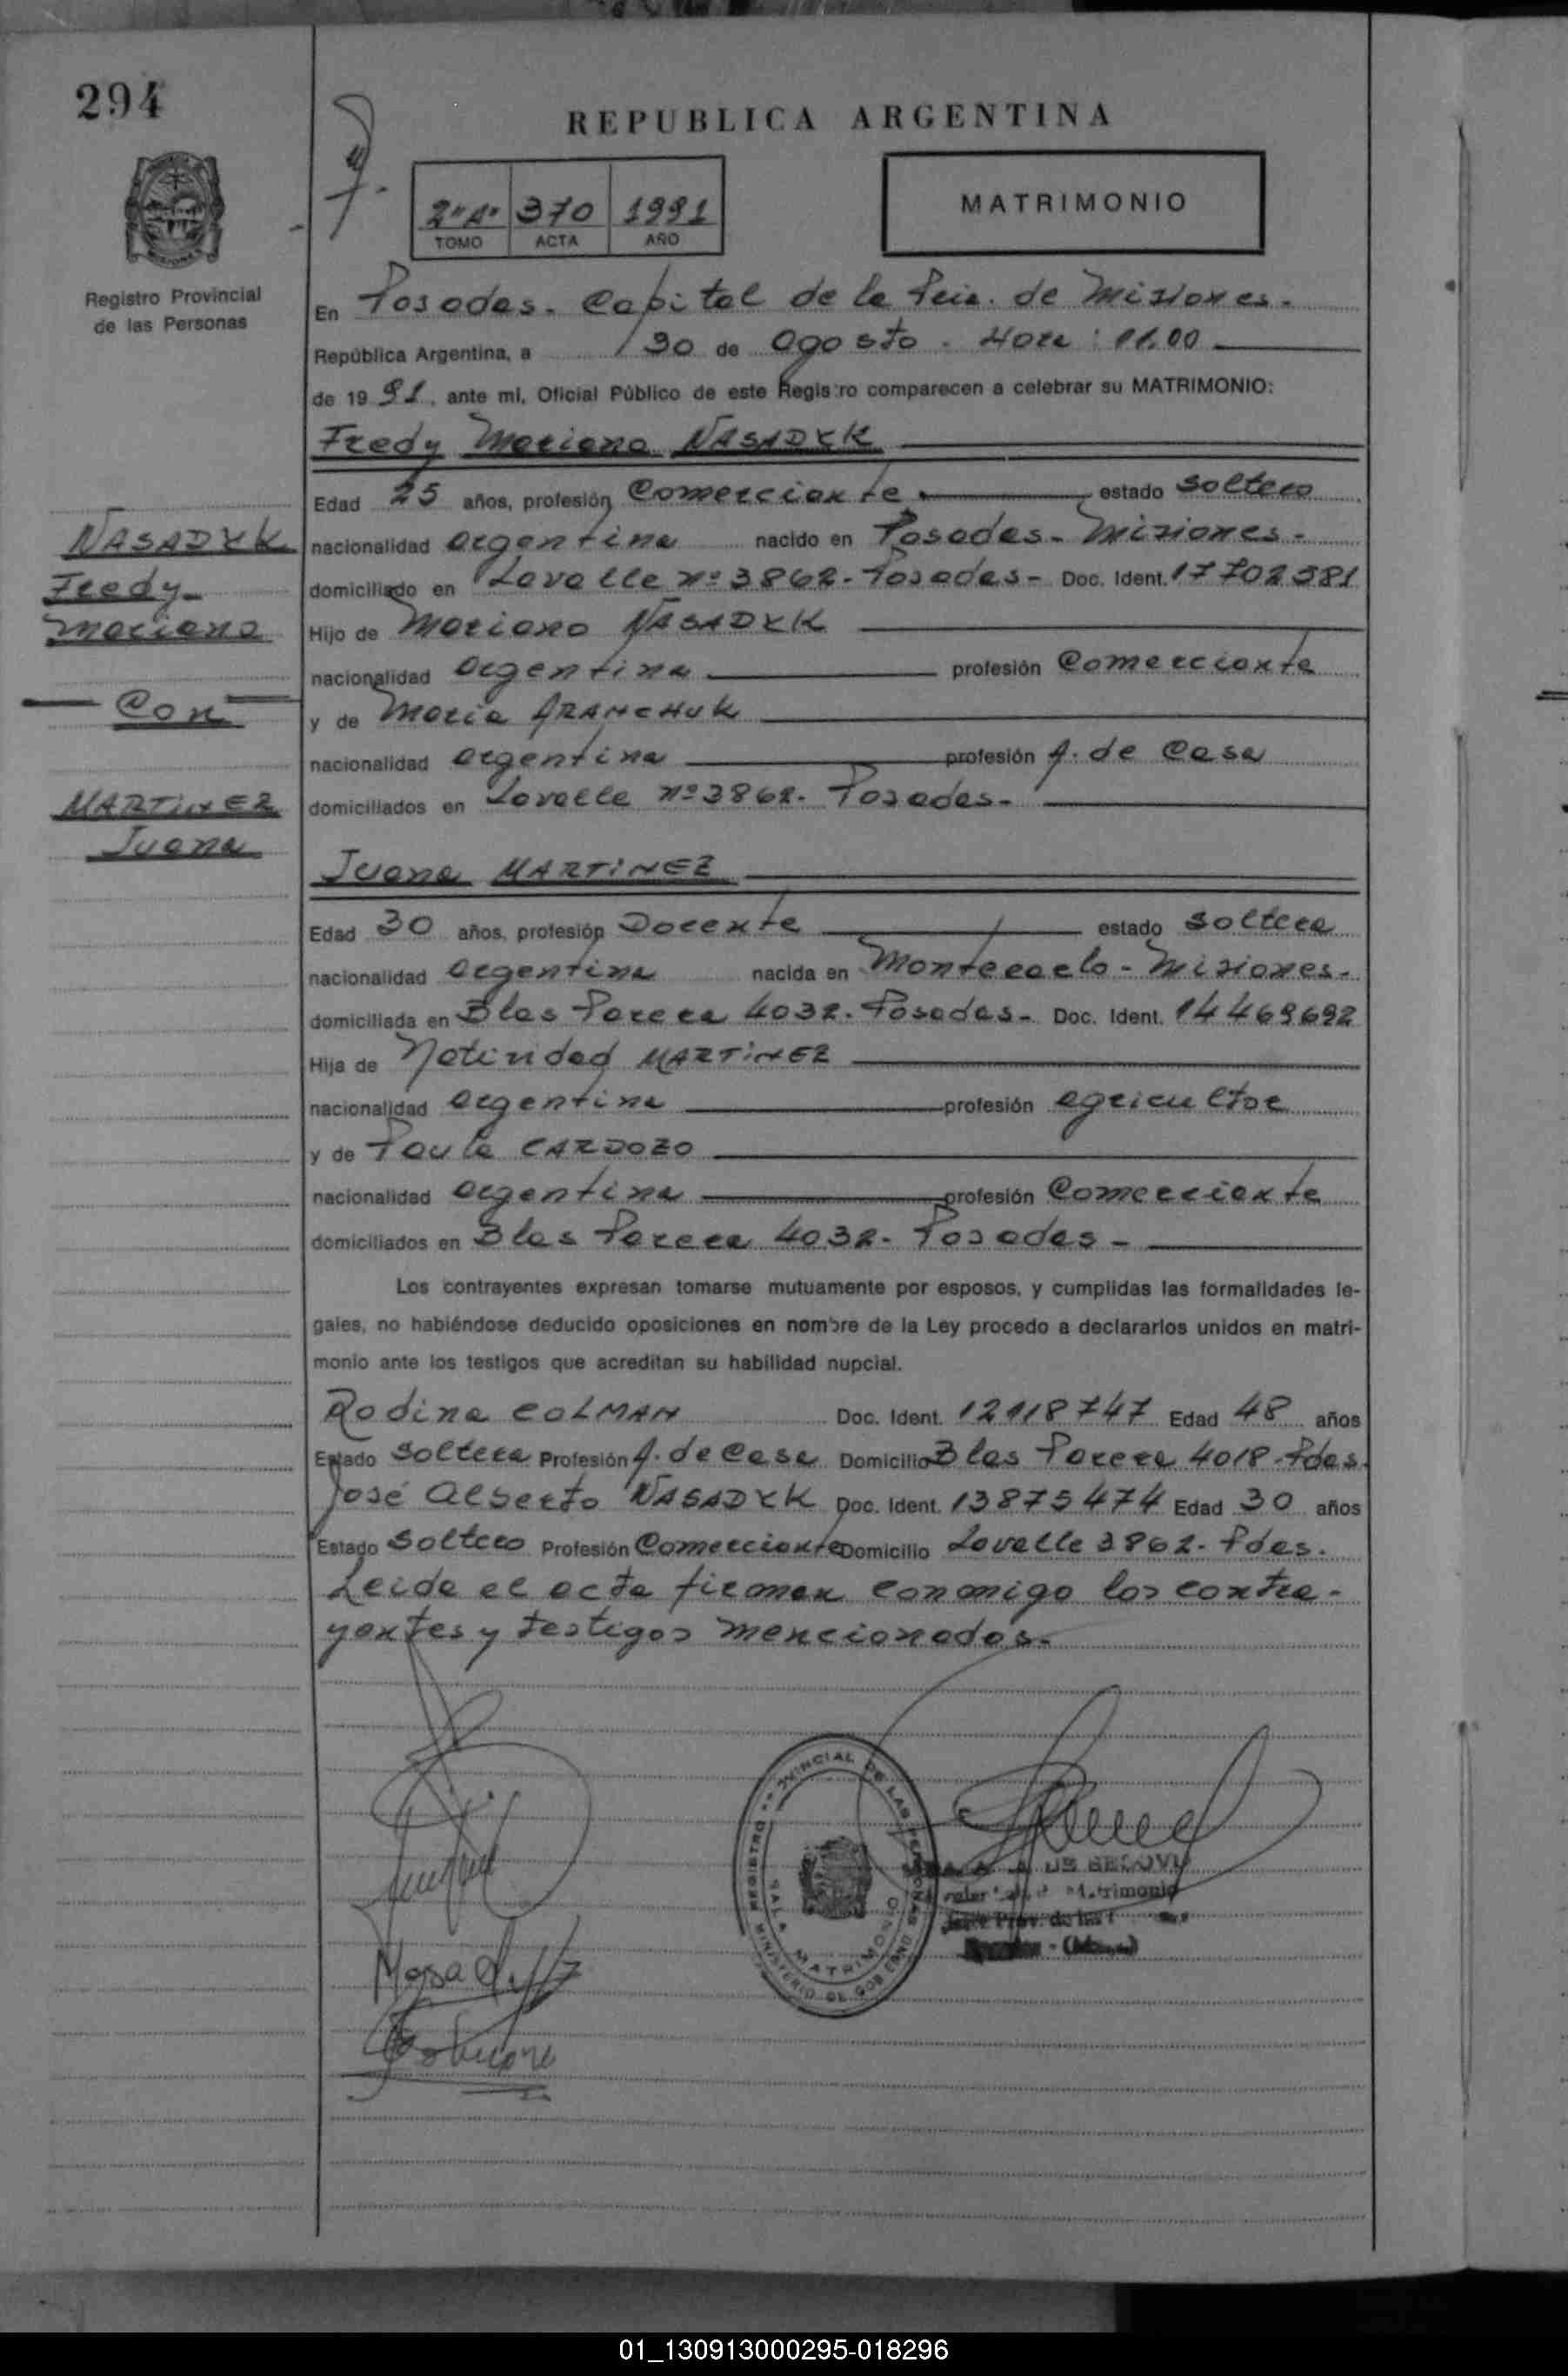 294
REPUBLICA ARGENTINA
2"A" 370 1991
TOMO ACTA AÑO
MATRIMONIO
Registro Provincial
de las Personas
En Posadas. Capital de la Pcia. de Misiones.
República Argentina, a 30 de Agosto. Hora: 11.00
de 19 91, ante mi, Oficial Público de este Registro comparecen a celebrar su MATRIMONIO:
Fredy Mariano NASADYK
Edad 25 años, profesión Comerciante estado soltero
NASADYK
Fredy
Mariano
Con
MARTINEZ
Juana
nacionalidad argentina nacido en Posadas - Misiones.
domiciliado en Lavalle nº 3862. Posadas - Doc. Ident. 17702381
Hijo de Mariano NASADYK
nacionalidad argentina profesión Comerciante
y de Maria ARANCHUK
nacionalidad argentina profesión A. de Casa
domiciliados en Lavalle nº 3862. Posadas.
Juana MARTINEZ
Edad 30 años, profesión Docente estado soltera
nacionalidad argentina nacida en Montecarlo - Misiones.
domiciliada en Blas Parera 4032. Posadas - Doc. Ident. 14469692
Hija de Natividad MARTINEZ
nacionalidad argentina profesión agricultor
y de Paula CARDOZO
nacionalidad argentina profesión Comerciante
domiciliados en Blas Parera 4032. Posadas -
Los contrayentes expresan tomarse mutuamente por esposos, y cumplidas las formalidades le-
gales, no habiéndose deducido oposiciones en nombre de la Ley procedo a declararlos unidos en matri-
monio ante los testigos que acreditan su habilidad nupcial.
Rodina COLMAN Doc. Ident. 12118747 Edad 48 años
Estado soltera Profesión A. de Casa Domicilio Blas Parera 4018 - Pdas.
José Alberto NASADYK Doc. Ident. 13875474 Edad 30 años
Estado soltero Profesión Comerciante Domicilio Lavalle 3862. Pdas.
Leida el acta firman conmigo los contra-
yentes y testigos mencionados.
REGISTRO PROVINCIAL DE LAS PERSONAS
SALA MATRIMONIO
MINISTERIO DE GOBIERNO
DE SEGOVIA
Matrimonio
01_130913000295-018296